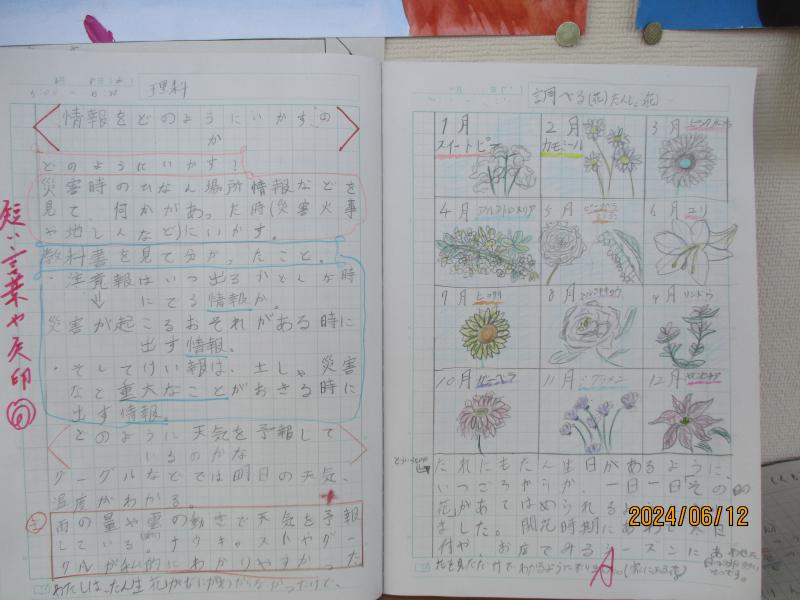 理科
情報をどのようにいかすのか
どのようにいかす?
災害時のひなん場所情報などを
見て 何かがあった時(災害火事
や地しんなど)にいかす。
教科書を見て分かったこと。
・注意報はいつ出るかどんな時
にでる情報か。
災害が起こるおそれがある時に
出す情報。
・そしてけい報は、土しゃ災害
など重大なことがおきる時に
出す情報。
どのように天気を予報して
いるのかな
グーグルなどでは明日の天気、
温度がわかる。
雨の量や雲の動きで天気を予報
している。ナウキャストやグー
グルが私的にわかりやすかった
わたしは、たん生花がなにかわからなかったけど、
短い言葉や矢印
調べる(花)たんじょう花
1月
スイートピー
2月
カモミール
3月
4月
アルストロメリア
5月
6月
ユリ
7月
ヒマワリ
8月
トルコキキョウ
9月
リンドウ
10月
ガーベラ
11月
シクラメン
12月
だれにもたん生日があるように、
いつごろからか、一日一日その
花があてはめられる
ました。開花時期にあわせ
付や、お店でみるシーズンに
あわせた
花を見ただけでわかるように
A
2024/06/12